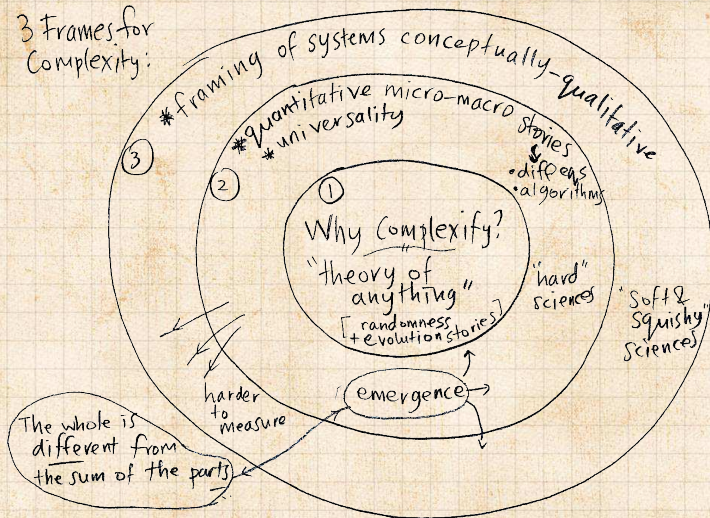 3 Frames for
Complexity:
③
*framing of systems conceptually-qualitative
②
*quantitative micro-macro stories
*universality
•diffeqs
•algorithms
①
Why Complexify?
"theory of
anything"
[randomness
+ evolution stories]
"hard"
sciences
"soft &
squishy"
sciences
harder
to
measure
emergence
The whole is
different from
the sum of the parts